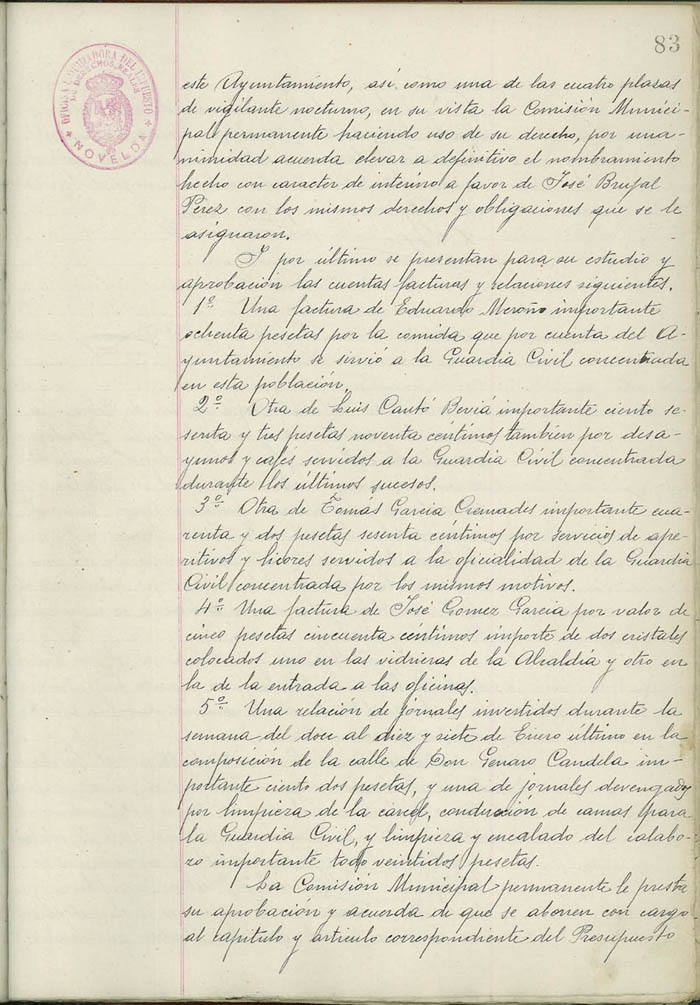 83
OFICINA LIQUIDADORA DEL IMPUESTO
DE DERECHOS REALES
* NOVELDA *
este Ayuntamiento, así como una de las cuatro plazas
de vigilante nocturno, en su vista la Comisión Munici-
pal permanente haciendo uso de su derecho, por una-
nimidad acuerda elevar a definitivo el nombramiento
hecho con caracter de interino a favor de José Brufal
Perez con los mismos derechos y obligaciones que se le
asignaron.
Y por último se presentan para su estudio y
aprobación las cuentas facturas y relaciones siguientes.
1º Una factura de Eduardo Meroño importante
ochenta pesetas por la comida que por cuenta del A-
yuntamiento se sirvió a la Guardia Civil concentrada
en esta población.
2º Otra de Luis Cantó Beviá importante ciento se-
senta y tres pesetas noventa céntimos tambien por desa-
yunos y cafés servidos a la Guardia Civil concentrada
durante los últimos sucesos.
3º Otra de Tomás Garcia Cremades importante cua-
renta y dos pesetas sesenta céntimos por servicios de ape-
ritivos y licores servidos a la oficialidad de la Guardia
Civil concentrada por los mismos motivos.
4º Una factura de José Gomez Garcia por valor de
cinco pesetas cincuenta céntimos importe de dos cristales
colocados uno en las vidrieras de la Alcaldía y otro en
la de la entrada a las oficinas.
5º Una relación de jornales invertidos durante la
semana del doce al diez y siete de Enero último en la
composición de la calle de Don Genaro Candela im-
portante ciento dos pesetas, y una de jornales devengados
por limpieza de la cárcel, conducción de camas para
la Guardia Civil, y limpieza y encalado del calabo-
zo importante todo veintidos pesetas.
La Comisión Municipal permanente le presta
su aprobación y acuerda de que se abonen con cargo
al capitulo y articulo correspondiente del Presupuesto